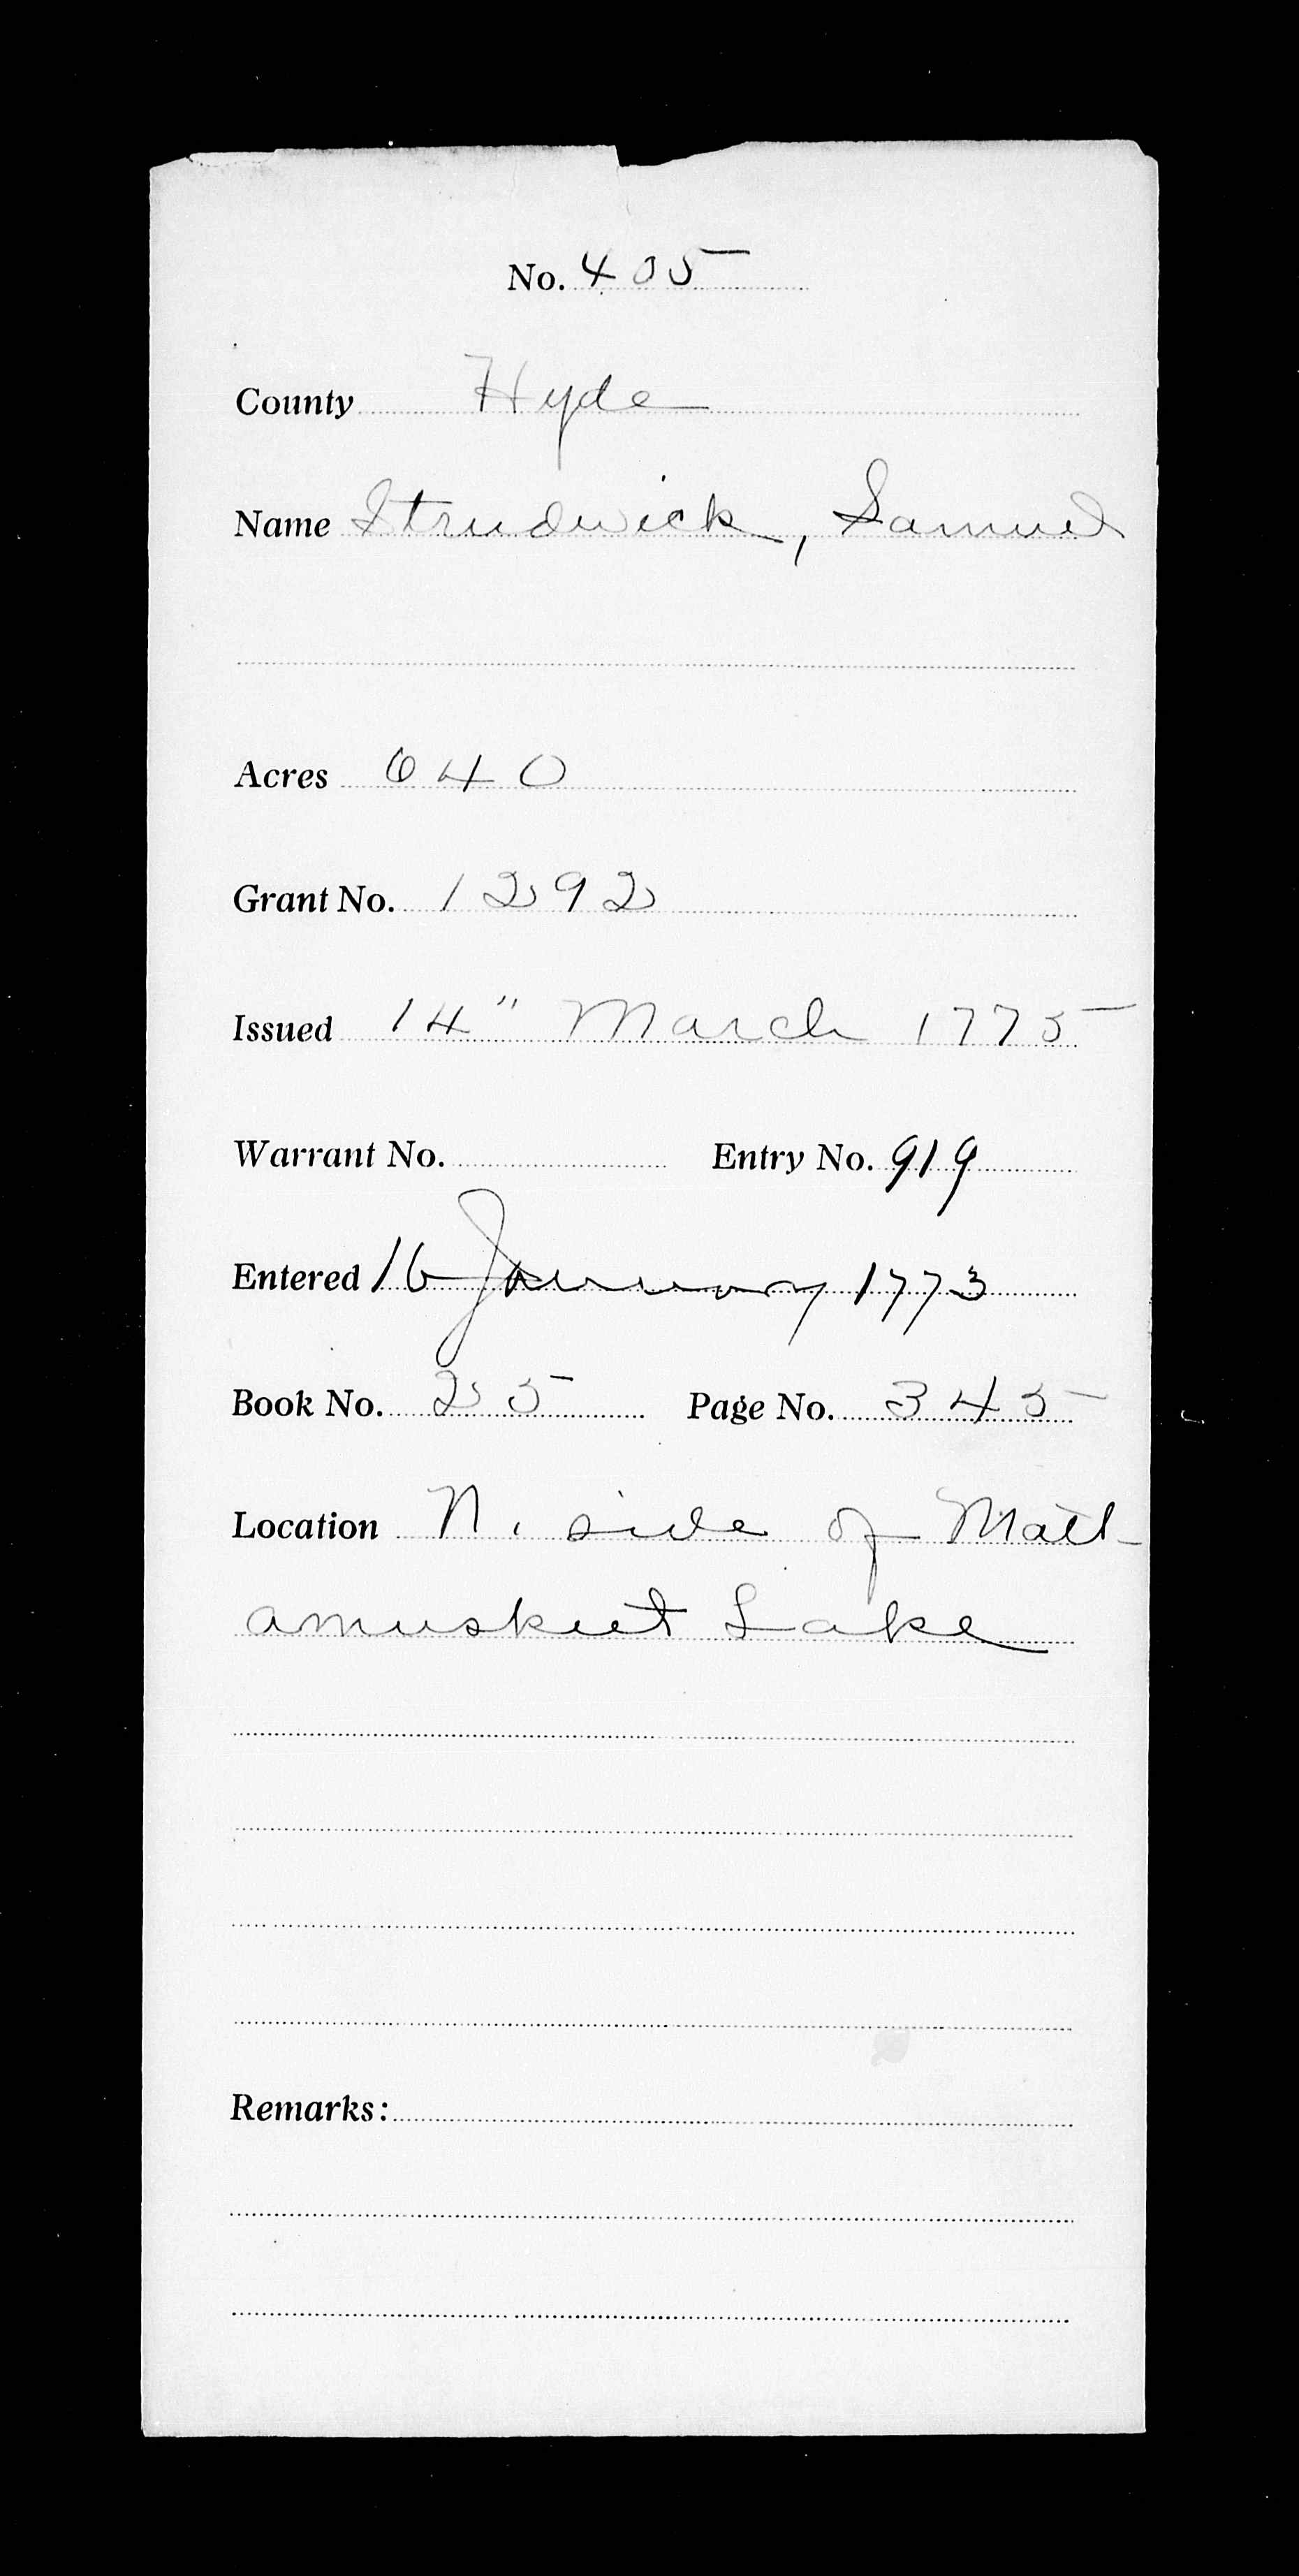 No. 405
County Hyde
Name Strudwick, Samuel
Acres 640
Grant No. 1292
Issued 14" March 1775
Warrant No. Entry No. 919
Entered 16 January 1773
Book No. 25 Page No. 345
Location N. side of Matt-
amuskeet Lake
Remarks: